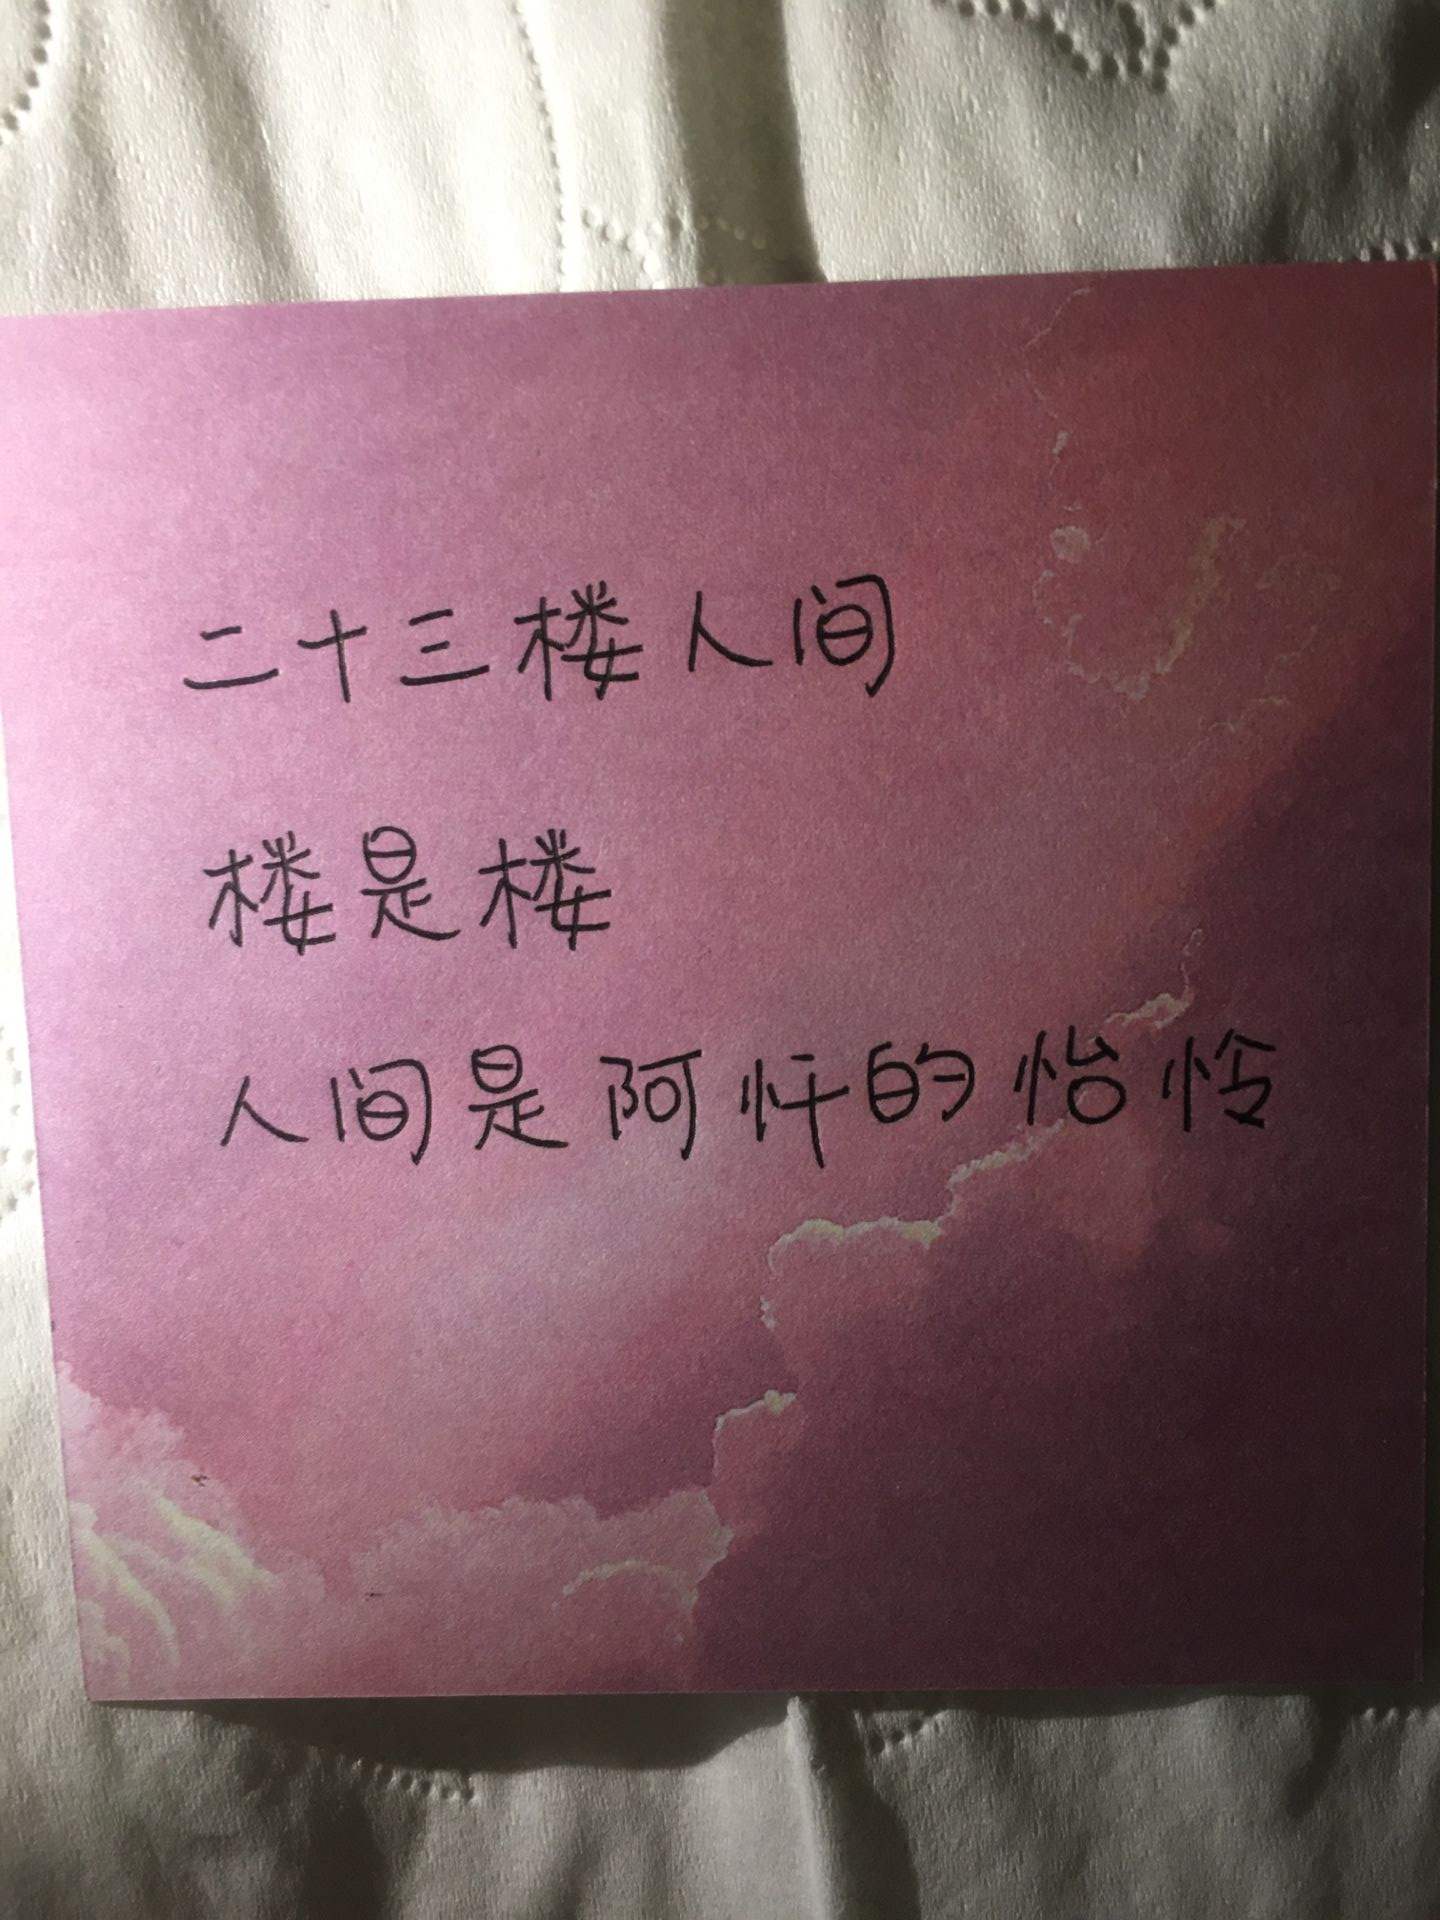 二十三楼人间
楼是楼
人间是阿忏的怡怜